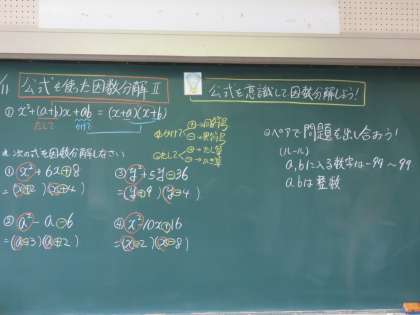 /11
公式を使った因数分解Ⅱ
公式を意識して因数分解しよう!
① x²+(a+b)x+ab=(x+a)(x+b)
たして かけて
かけて
⊕→同符号
⊖→異符号
たして
⊕→たし算
⊖→ひき算
次の式を因数分解しなさい
① x²+6x+8
=(x+2)(x+4)
② a²-a-6
=(a-3)(a+2)
③ y²+5y-36
=(y+9)(y-4)
④ x²-10x+16
=(x-2)(x-8)
ペアで問題を出し合おう!
(ルール)
a,bに入る数字は-99~99
a bは整数